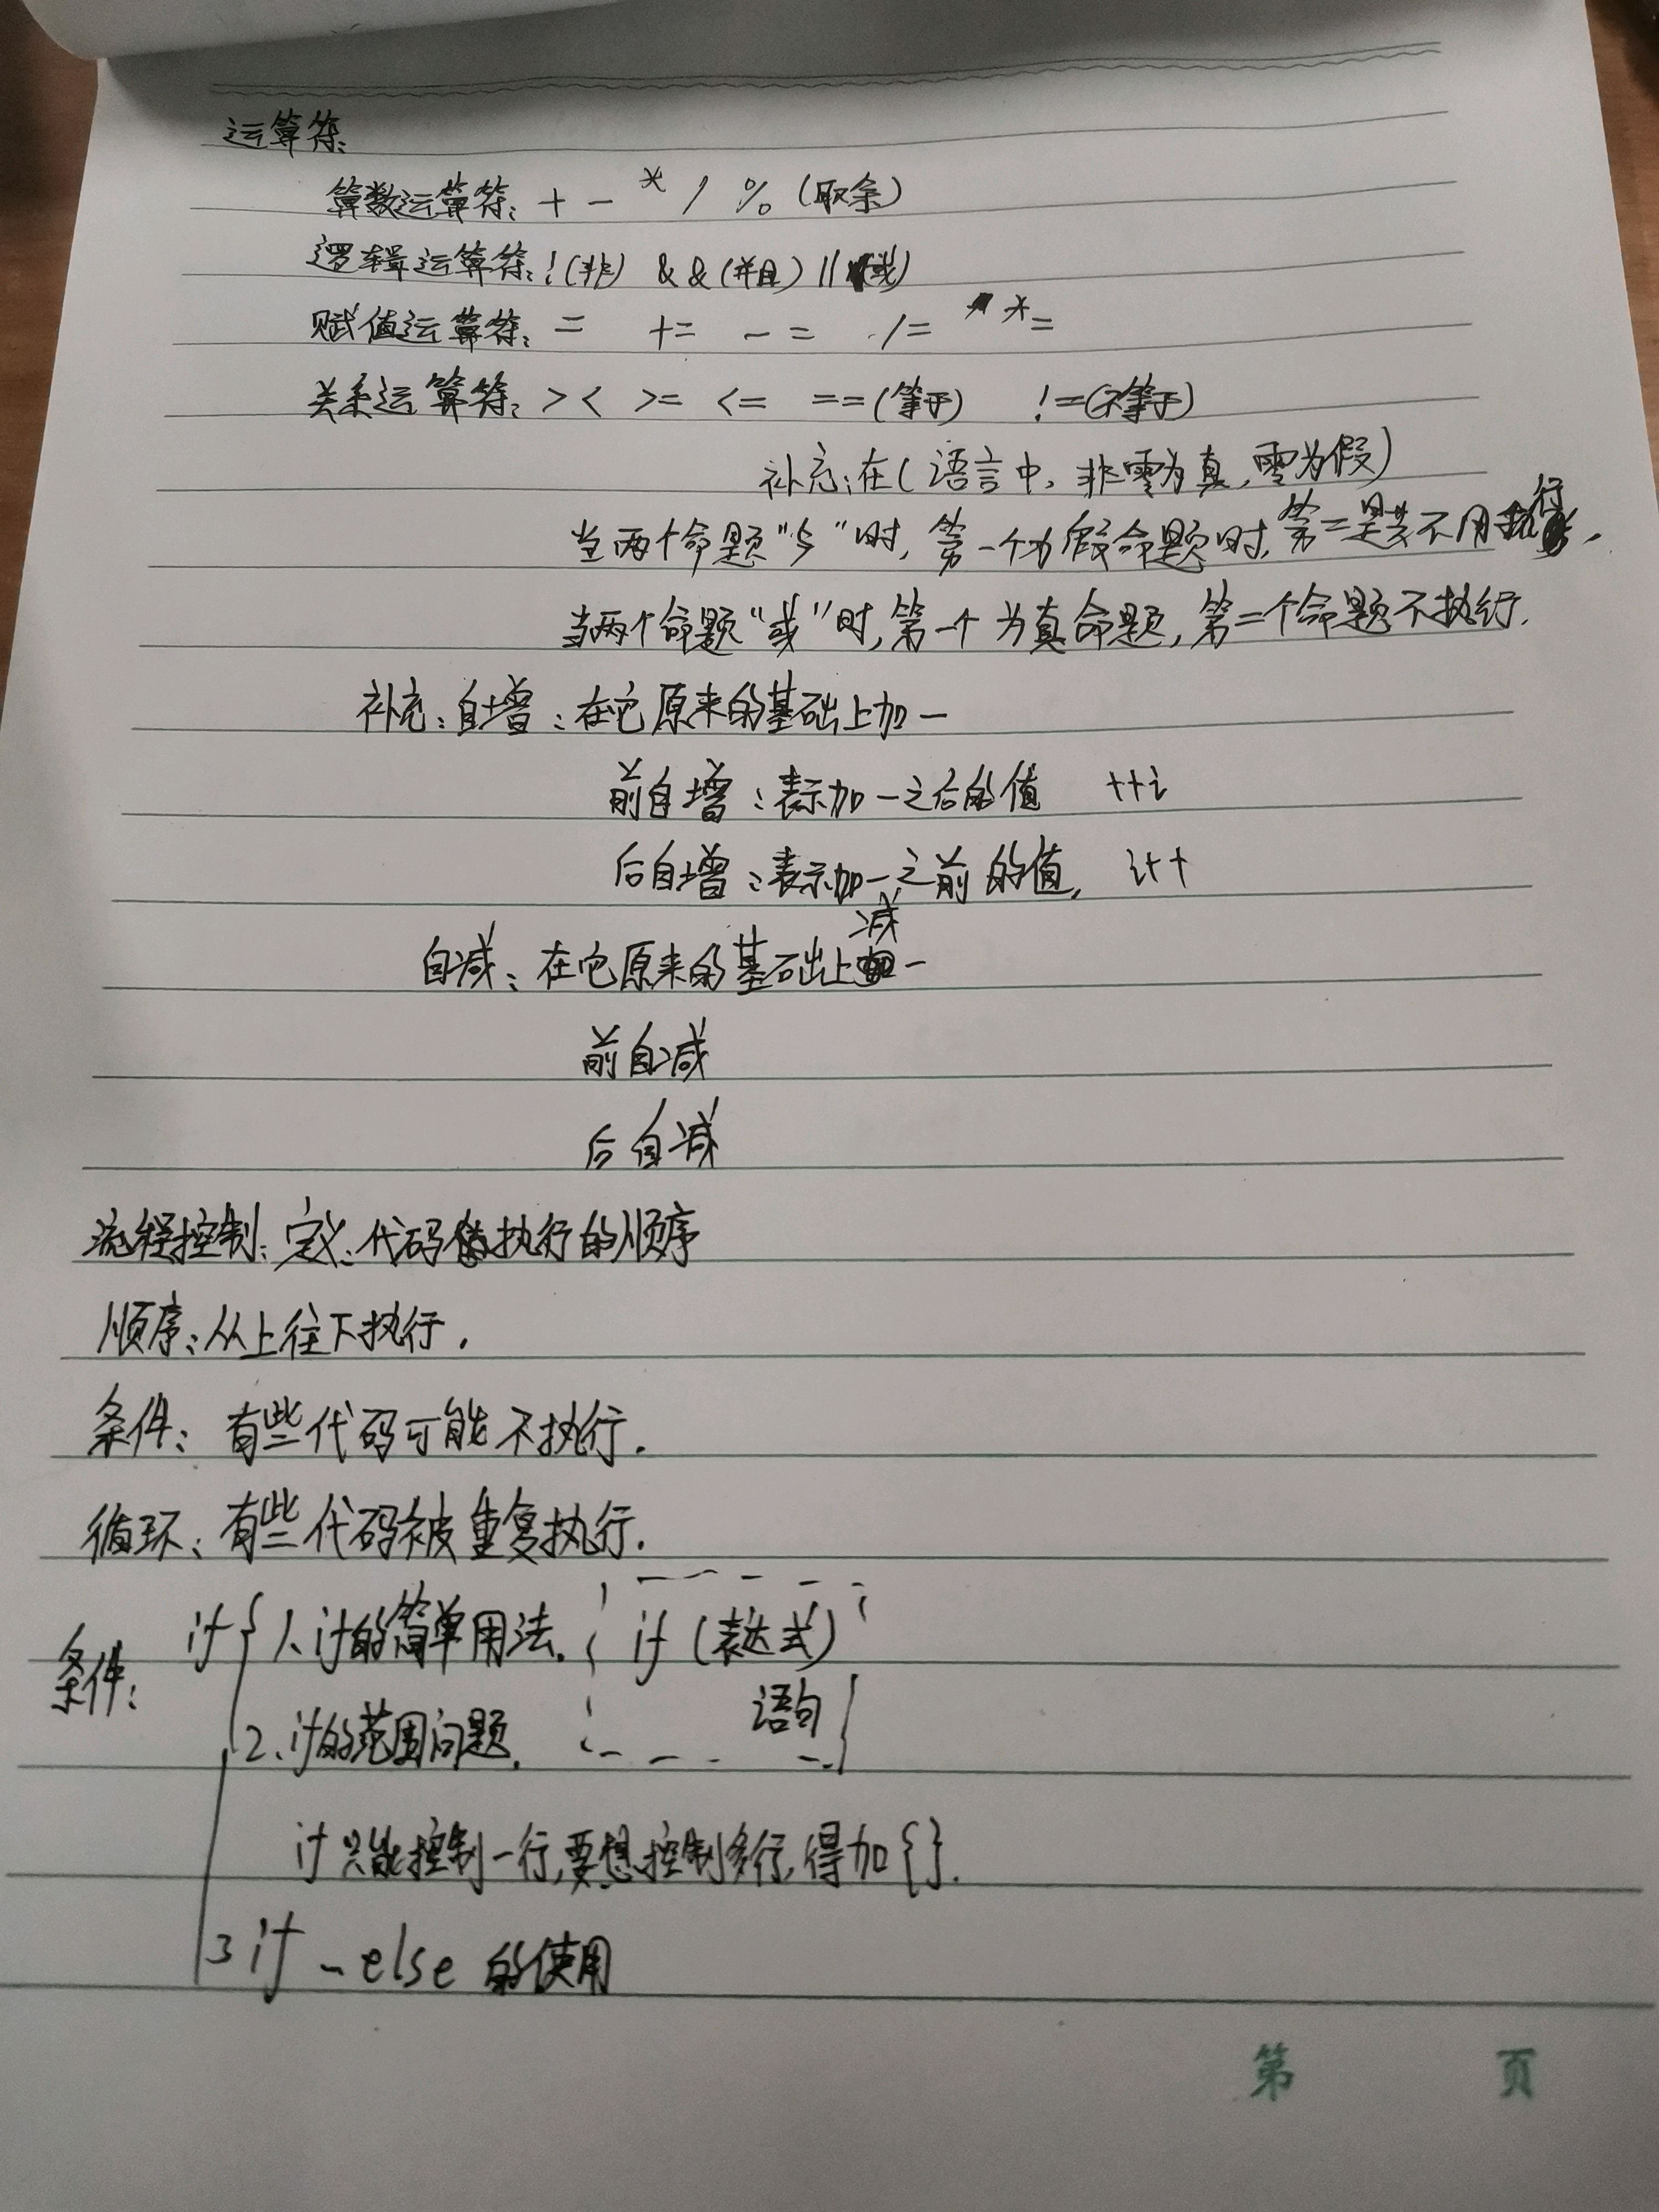 运算符:
算数运算符: + - * / % (取余)
逻辑运算符: !(非) &&(并且) ||(或)
赋值运算符: = += -= /= *=
关系运算符: > < >= <= ==(等于) !=(不等于)
补充:在C语言中,非零为真,零为假)
当两个命题“与”时,第一个为假命题时,第二是不用执行,
当两个命题“或”时,第一个为真命题,第二个命题不执行.
补充:自增:在它原来的基础上加一
前自增:表示加一之后的值 ++i
后自增:表示加一之前的值, i++
自减:在它原来的基础上减一
前自减
后自减
流程控制:定义:代码执行的顺序
顺序:从上往下执行.
条件:有些代码可能不执行.
循环:有些代码被重复执行.
条件: if { 1、if的简单用法. if (表达式)
语句
2、if的范围问题.
if只能控制一行,要想控制多行,得加{}.
3 if -else 的使用
第 页